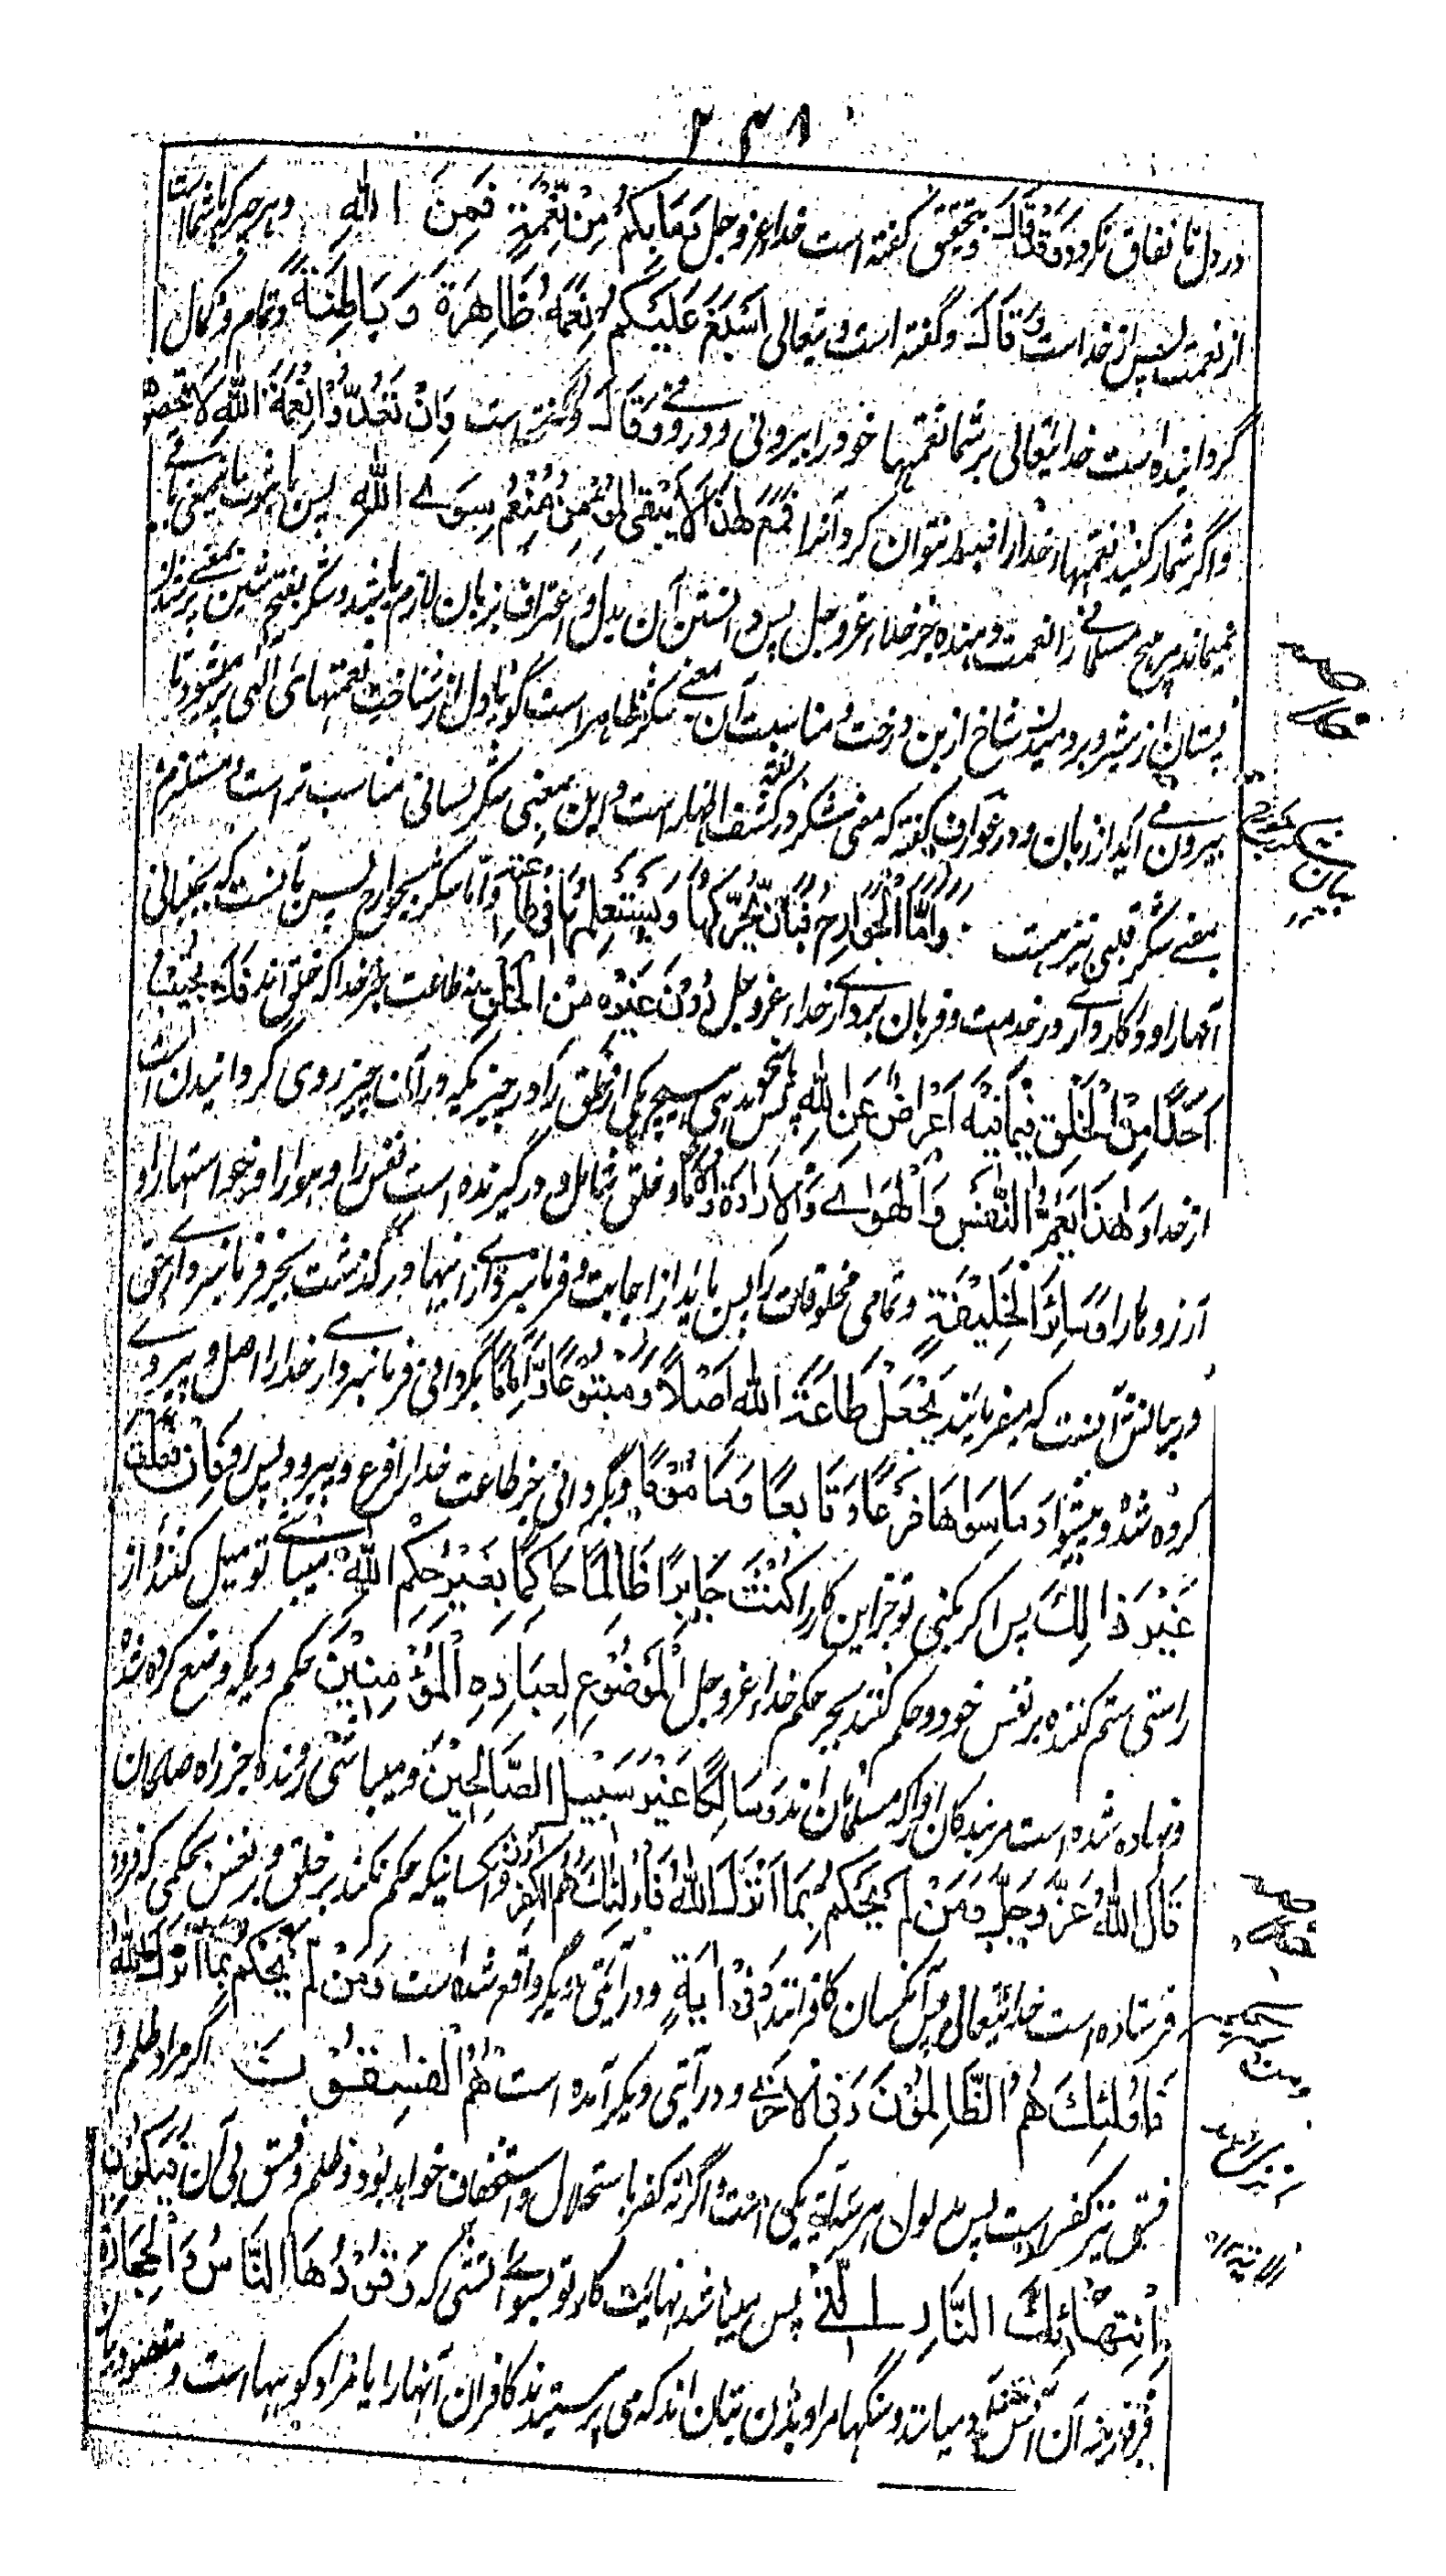 ۲۳۸
در دل تا نفاق نگردد وَقَدْ قَالَ و بتحقیق گفته است خداء عز و جل وَمَا بِكُمْ مِنْ نِعْمَةٍ فَمِنَ اللهِ و هر چیز که با شما است
از نعمت پس از خداست وَ قَالَ و گفته است تعالی اَسْبَغَ عَلَيْكُمْ نِعَمَهُ ظَاهِرَةً وَ بَاطِنَةً و تمام و کمال
گردانیده است خدایتعالی بر شما نعمتها خود را بیرونی و درونی وَقَالَ و گفته است وَاِنْ تَعُدُّوْا نِعْمَةَ اللهِ لَا تُحْصُوْهَا
و اگر شمار کنید نعمتهاء خدا را ضبط نتوان کرد آنرا فَمَعَ هٰذَا لَا يَبْقٰى لِمُؤْمِنٍ مُنْعِمٌ سِوَى اللهِ پس با ثبوت این معنی باقی
نمیماند مر هیچ مسلمانی را نعمت دهنده جز خداء عز و جل پس دانستن آن بدل و اعتراف بزبان لازم باشد و شکر بفتح شین بمعنی پر شدن
پستان از شیر و بر دمیدن شاخ از بن درخت و مناسبت آن بمعنی شکر ظاهر است گویا دل از شناخت نعمتهای الهی پر میشود تا
بیرون می آید از زبان و در عوارف گفته که معنی شکر در لغة کشف و اظهار است و این بمعنی شکر لسانی مناسب تر است و مستلزم
بمعنے شکر قلبی نیز هست وَاَمَّا الْجَوَارِحُ فَبِاَنْ تُحَرِّكَهَا وَ يَسْتَعْمِلَهَا فِىْ طَاعَةِ و اما شکر بجوارح پس بآنست که بجنبانی
آنها را و در کار داری در خدمت و فرمان برداری خداء عز و جل دُوْنَ غَيْرِهٖ مِنَ الْخَلْقِ نه طاعت جز خدا که خلق اند فَلَا تُجِيْبُ
اَحَدًا مِنَ الْخَلْقِ فِيْمَا فِيْهِ اِعْرَاضٌ عَنِ اللهِ پس پاسخ ندهی هیچ یکی از خلق را در چیزیکه در آن چیز روی گردانیدن است
از خدا وَ هٰذَا يَعُمُّ النَّفْسَ وَالْهَوٰى وَالْاِرَادَةَ وَالْاَمَانِیْ و خلق شامل و در گیرنده است نفس را و هوا را و خواستها را و
آرزوها را وَسَائِرَ الْخَلِيْقَةِ و تمامی مخلوقات را پس باید از اجابت و فرمانبرداری اینها در گذشت بجز فرمانبرداری حق
و بیانش آنست که میفرمایند تَجْعَلُ طَاعَةَ اللهِ اَصْلًا وَ مَتْبُوْعًا وَّ اِمَامًا بگردانی فرمانبرداری خدا را اصل و پیروی
کرده شده و پیشوا وَ مَا سِوَاهَا فَرْعًا وَ تَابِعًا وَ مَامُوْمًا و بگردانی جز طاعت خدا را فرع و پیرو و پس رو فَاِنْ فَعَلْتَ
غَيْرَ ذٰلِكَ پس اگر بکنی تو جز این کار را كُنْتَ جَابِرًا ظَالِمًا حَاكِمًا بِغَيْرِ حُكْمِ اللهِ میباشی تو میل کننده از
راستی ستم کننده بر نفس خود و حکم کننده بجز حکم خداء عز و جل الْمَوْضُوْعِ لِعِبَادِهِ الْمُؤْمِنِيْنَ حکم دیگر وضع کرده شده
و نهاده شده است مر بندگان او را که مسلمانان اند وَ سَالِكًا غَيْرَ سَبِيْلِ الصَّالِحِيْنَ و میباشی رونده جز راه صالحان
قَالَ اللهُ عَزَّ وَ جَلَّ وَ مَنْ لَّمْ يَحْكُمْ بِمَا اَنْزَلَ اللهُ فَاُولٰئِكَ هُمُ الْكٰفِرُوْنَ و کسانیکه حکم نکنند بر خلق و بر نفس بحکمی که فرود
فرستاده است خدایتعالی پس آنکسان کافرانند وَفِىْ اٰيَةٍ و در آیتی دیگر واقع شده است وَ مَنْ لَّمْ يَحْكُمْ بِمَا اَنْزَلَ اللهُ
فَاُولٰئِكَ هُمُ الظَّالِمُوْنَ وَفِى الْاُخْرٰى و در آیتی دیگر آمده است هُمُ الْفٰسِقُوْنَ اگر مراد ظلم و
فسق نیز کفر است پس مدلول هر سه آیة یکی است و اگر نه کفر با استحلال و استخفاف خواهد بود و ظلم و فسق بی آن فَيَكُوْنُ
اِنْتِهَائُكَ اِلَى النَّارِ الَّتِىْ پس میباشد نهایت کار تو بسوی آتشی که وَقُوْدُهَا النَّاسُ وَالْحِجَارَةُ
فروزینه آن آتش آدمیانند و سنگها مراد بآن بتان اند که می پرستیدند کافران آنها را یا مراد کوهها است و مقصود بیان